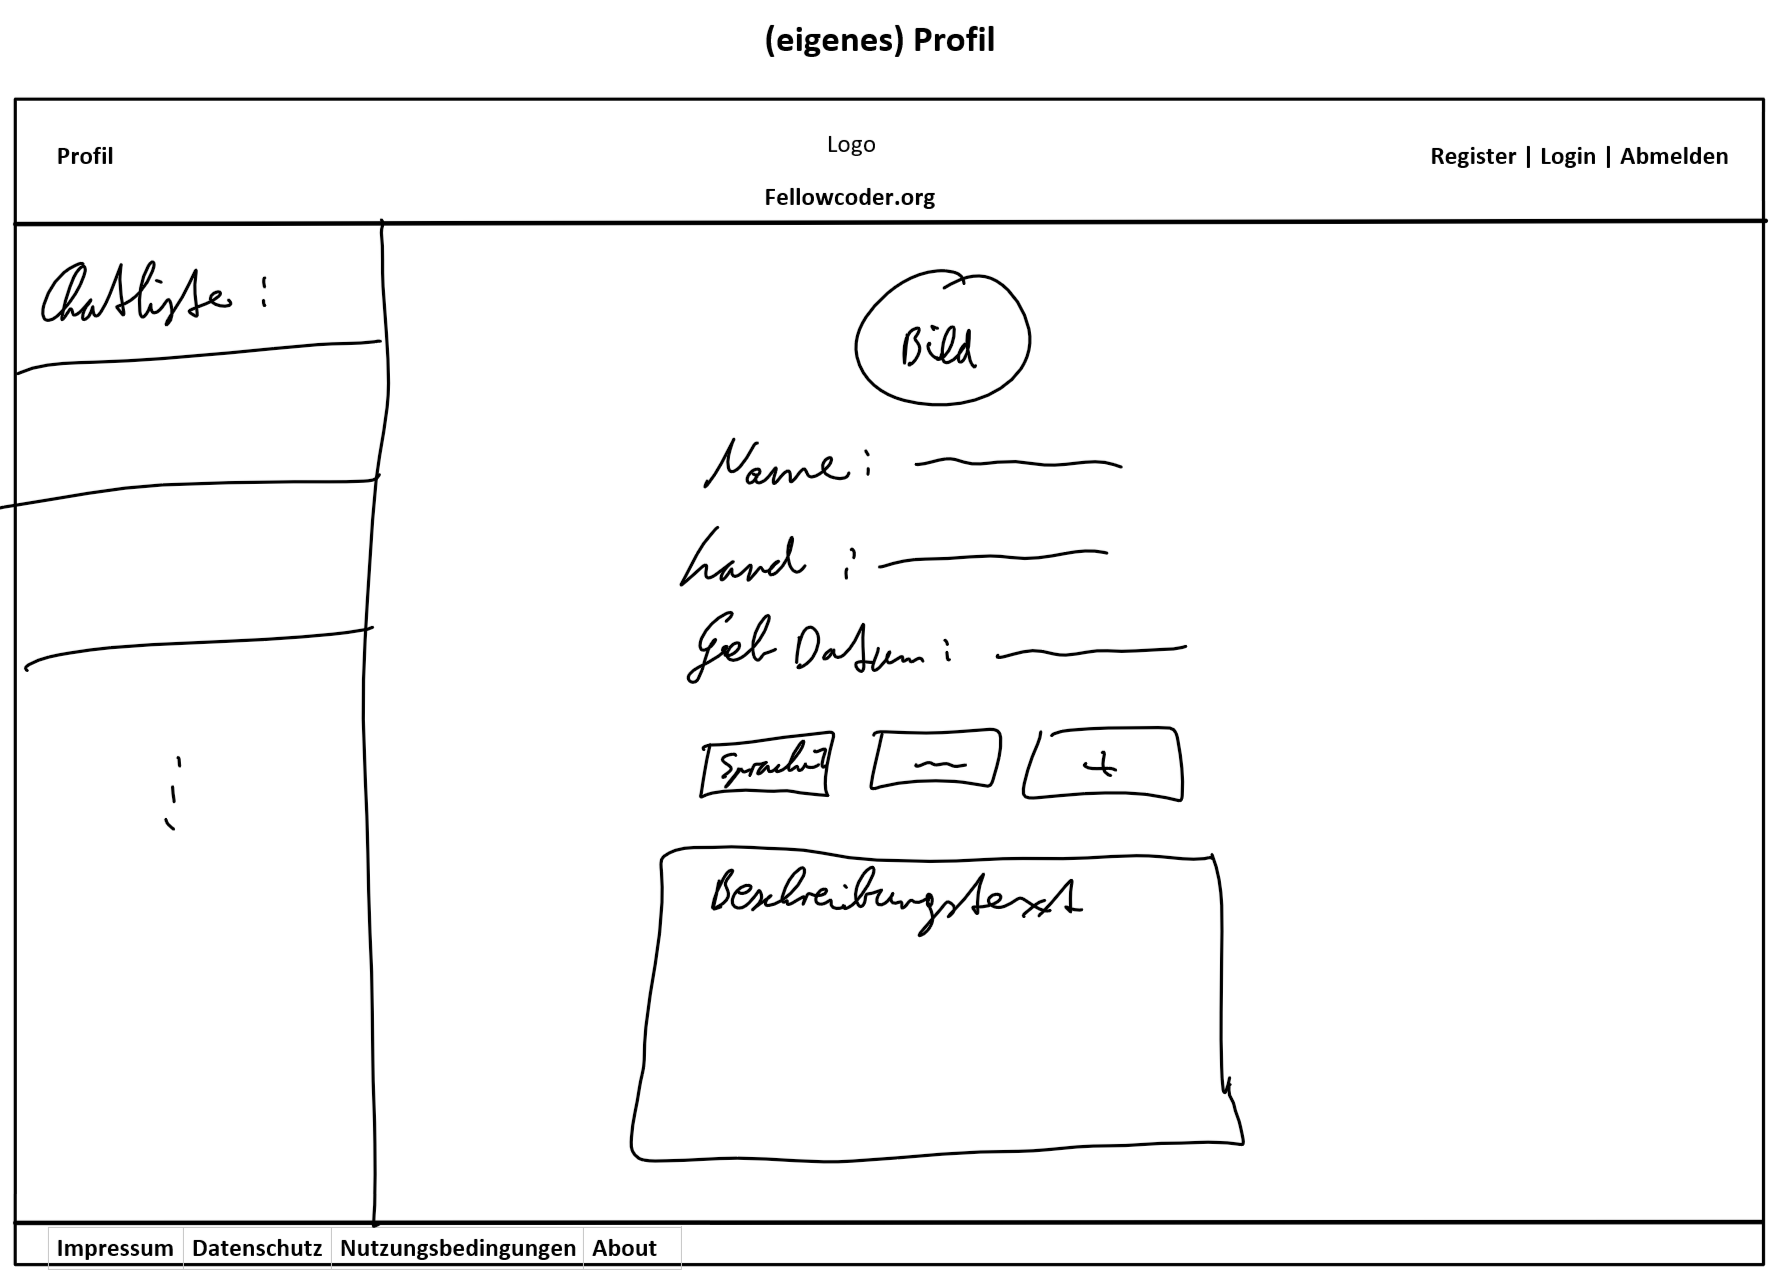 (eigenes) Profil
Profil
Logo
Fellowcoder.org
Register | Login | Abmelden
Chatliste :
Bild
Name :
Land :
Geb Datum :
Sprache1
+
Beschreibungstext
Impressum Datenschutz Nutzungsbedingungen About